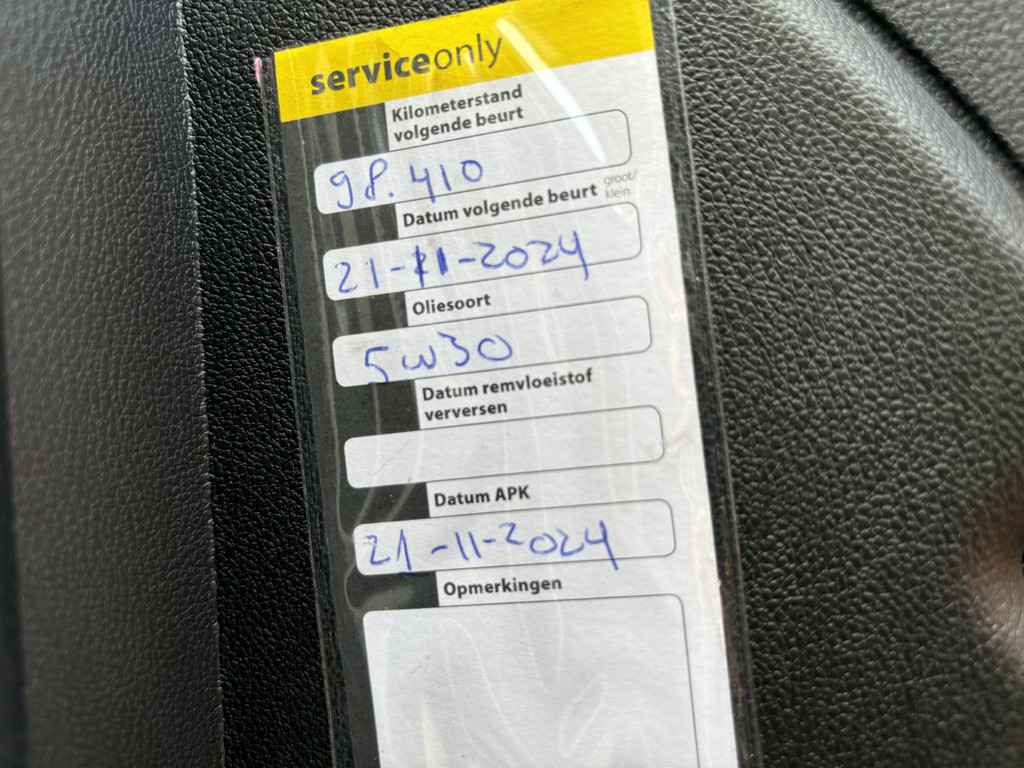 serviceonly
Kilometerstand
volgende beurt
98.410
Datum volgende beurt groot/
klein
21-11-2024
Oliesoort
5W30
Datum remvloeistof
verversen
Datum APK
21-11-2024
Opmerkingen